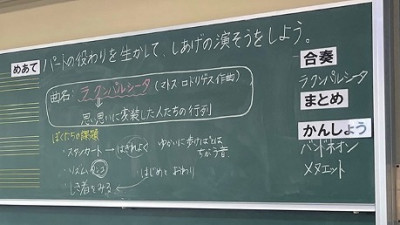 めあて パートの役わりを生かして、しあげの演そうをしよう。
曲名:ラ・クンパルシータ(マトス・ロドリゲス作曲)
思い思いに変装した人たちの行列
ぼくたちの課題
・スタッカート→はぎれよく
ちがう音
・リズム
・し者をみる← はじめとおわり
合奏
ラクンパルシータ
まとめ
かんしょう
バンドネオン
メヌエット